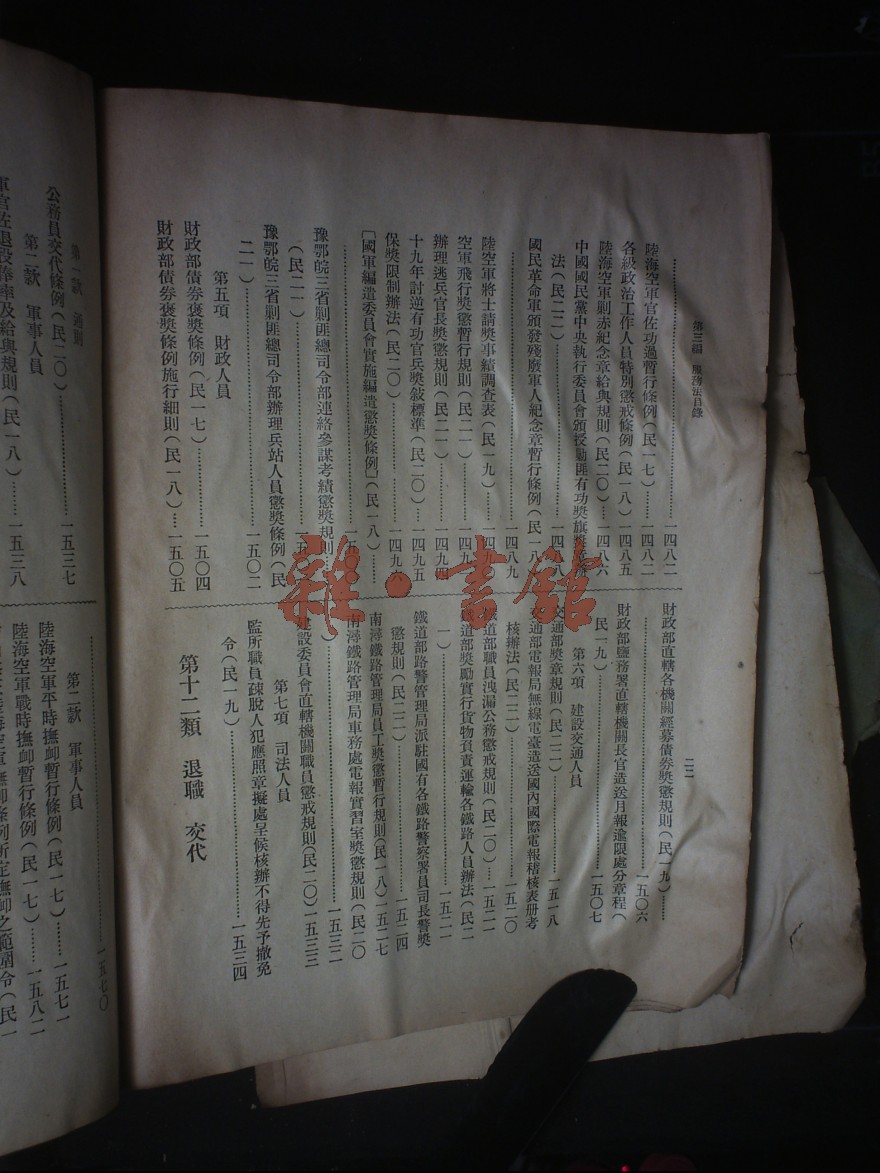 第三編　服務法目錄
二二
陸海空軍官佐功過暫行條例(民一七)……一四八二
各級政治工作人員特別懲戒條例(民一八)一四八五
陸海空軍剿赤紀念章給與規則(民二〇)…一四八六
中國國民黨中央執行委員會頒授勦匪有功獎旗獎章辦
法(民二二)
國民革命軍頒發殘廢軍人紀念章暫行條例(民一八)
……一四八九
陸空軍將士請獎事績調查表(民一九)
空軍飛行獎懲暫行規則(民二一)
辦理逃兵官長獎懲規則(民二一)……一四九四
十九年討逆有功官兵獎敍標準(民二〇)…一四九五
保獎限制辦法(民二〇)
[國軍編遣委員會實施編遣懲獎條例](民一八)……
豫鄂皖三省剿匪總司令部連絡參謀考績懲獎規則
(民二一)
豫鄂皖三省剿匪總司令部辦理兵站人員懲獎條例(民
二一)……一五〇二
第五項　財政人員
財政部債券褒獎條例(民一七)……一五〇四
財政部債券褒獎條例施行細則(民一八)…一五〇五
財政部直轄各機關經募債券獎懲規則(民一九)……
……一五〇六
財政部鹽務署直轄機關長官造送月報逾限處分章程(
民一九)……一五〇七
第六項　建設交通人員
交通部獎章規則(民二二)……一五一八
交通部電報局無線電臺造送國內國際電報稽核表册考
核辦法(民二二)……一五二〇
鐵道部職員洩漏公務懲戒規則(民二〇)…一五二一
鐵道部獎勵實行貨物負責運輸各鐵路人員辦法(民二
一)……一五二一
鐵道部路警管理局派駐國有各鐵路警察署員司長警獎
懲規則(民二二)……一五二四
南潯鐵路管理局員工獎懲暫行規則(民一八)一五二七
南潯鐵路管理局車務處電報實習室獎懲規則(民二〇
)……一五三二
建設委員會直轄機關職員懲戒規則(民二〇)一五三三
第七項　司法人員
監所職員疎脫人犯應照章擬處呈候核辦不得先予撤免
令(民一九)……一五三四
第十二類　退職　交代
第一款　通則
公務員交代條例(民二〇)……一五三七
第二款　軍事人員
軍官佐退役俸率及給與規則(民一八)…一五三八
……一五七〇
第二款　軍事人員
陸海空軍平時撫卹暫行條例(民一七)……一五七一
陸海空軍戰時撫卹暫行條例(民一七)……一五八二
雜·書館